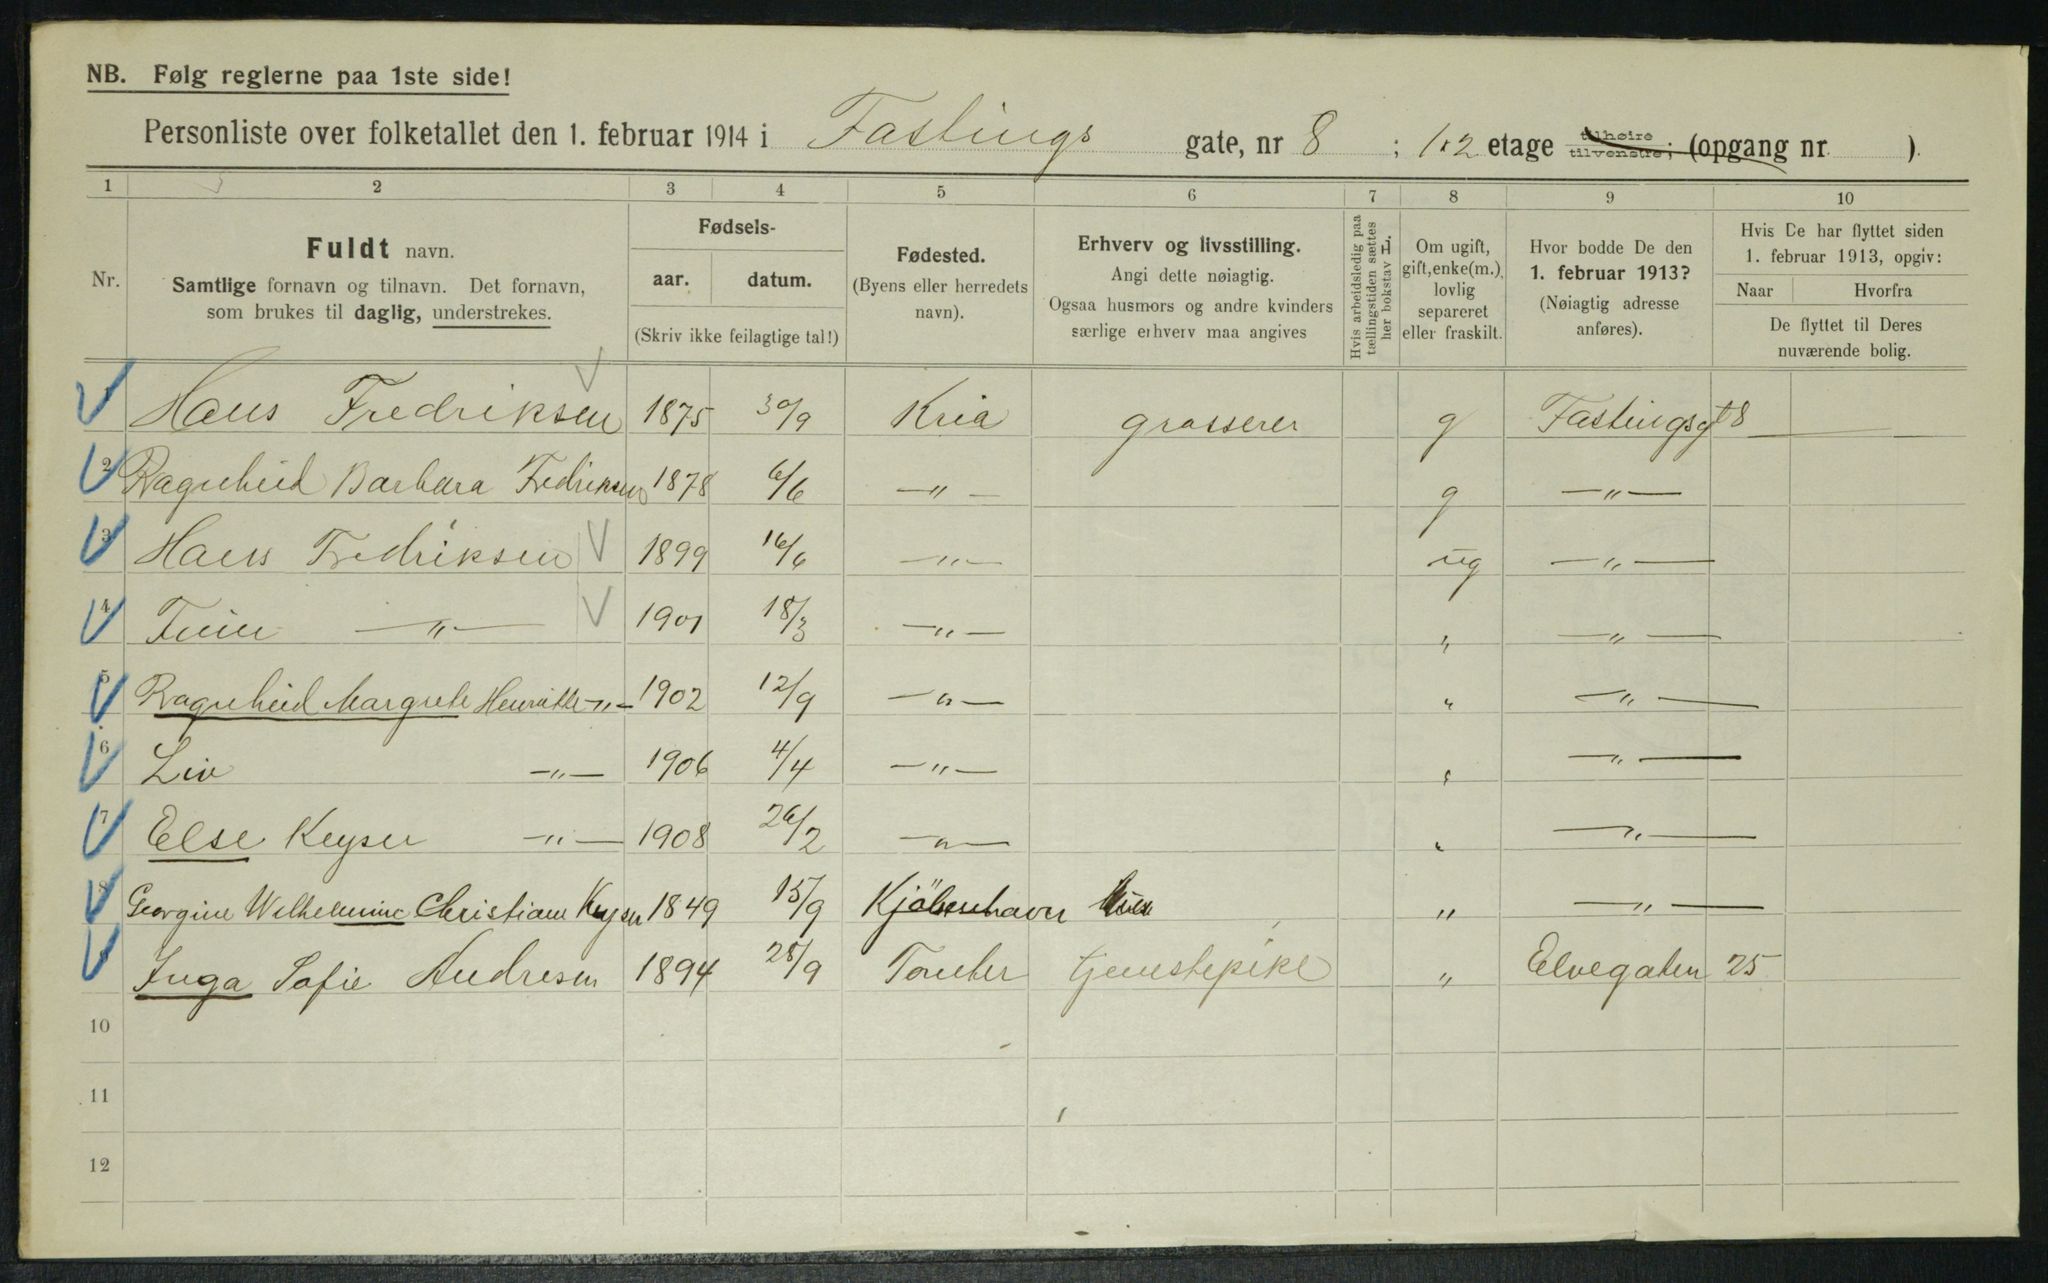 NB. Følg reglerne paa 1ste side!
Personliste over folketallet den 1. februar 1914 i Fastings gate, nr 8 ; 1 2 etage tilhøire tilvenstre; (opgang nr. ).
1 2 3 4 5 6 7 8 9 10
Nr. Fuldt navn. Samtlige fornavn og tilnavn. Det fornavn, som brukes til daglig, understrekes.
Fødsels- aar. datum. (Skriv ikke feilagtige tal!)
Fødested. (Byens eller herredets navn).
Erhverv og livsstilling. Angi dette nøiagtig. Ogsaa husmors og andre kvinders særlige erhverv maa angives
Hvis arbeidsledig paa tællingstiden sættes her bokstav L.
Om ugift, gift, enke(m.), lovlig separeret eller fraskilt.
Hvor bodde De den 1. februar 1913? (Nøiagtig adresse anføres).
Hvis De har flyttet siden 1. februar 1913, opgiv: Naar Hvorfra De flyttet til Deres nuværende bolig.
Hans Fredriksen 1875 30/9 Kria grosserer g Fastingsgt 8 —
2 Ragnheid Barbara Fredriksen 1878 6/6 —"— g —"—
3 Hans Fredriksen 1899 16/6 —"— ug —"—
4 Finn —"— 1901 18/3 —"— " —"—
5 Ragnheid Margrete Henriette —"— 1902 12/9 —"— " —"—
6 Liv —"— 1906 4/4 —"— " —"—
7 Else Keyser —"— 1908 26/2 —"— " —"—
8 Georgine Wilhelmine Christiane Keyser 1849 15/9 Kjöbenhavn " —"—
Inga Sofie Andresen 1894 28/9 Tomter tjenestepike " Elvegaten 25
10
11
12